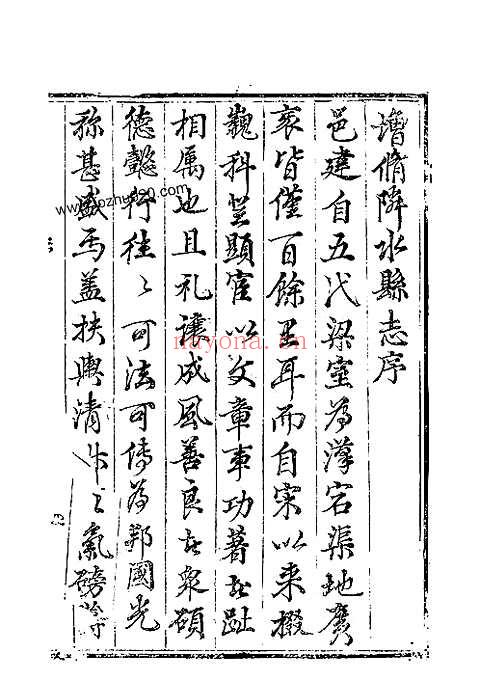 增脩隣水縣志序
邑建自五代梁寔為漢宕渠地廣
袤皆僅百餘里耳而自宋以來掇
巍科登顯宦以文章事功著者趾
相属也且礼讓成風善良者衆碩
德懿行徃〻可法可傳為邦國光
称甚盛焉盖扶輿清淑之氣磅礴
nayona.cn